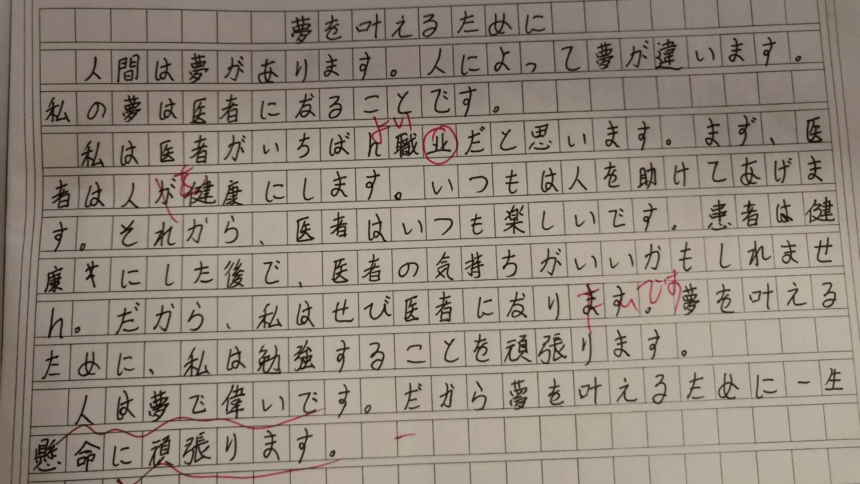 夢を叶えるために
人間は夢があります。人によって夢が違います。
私の夢は医者になることです。
よい
私は医者がいちばん職業だと思います。まず、医
を
者は人が健康にします。いつもは人を助けてあげま
す。それから、医者はいつも楽しいです。患者は健
康にした後で、医者の気持ちがいいかもしれませ
ん。だから、私はぜひ医者になります。夢を叶える
たいです
ために、私は勉強することを頑張ります。
人は夢で偉いです。だから夢を叶えるために一生
懸命に頑張ります。